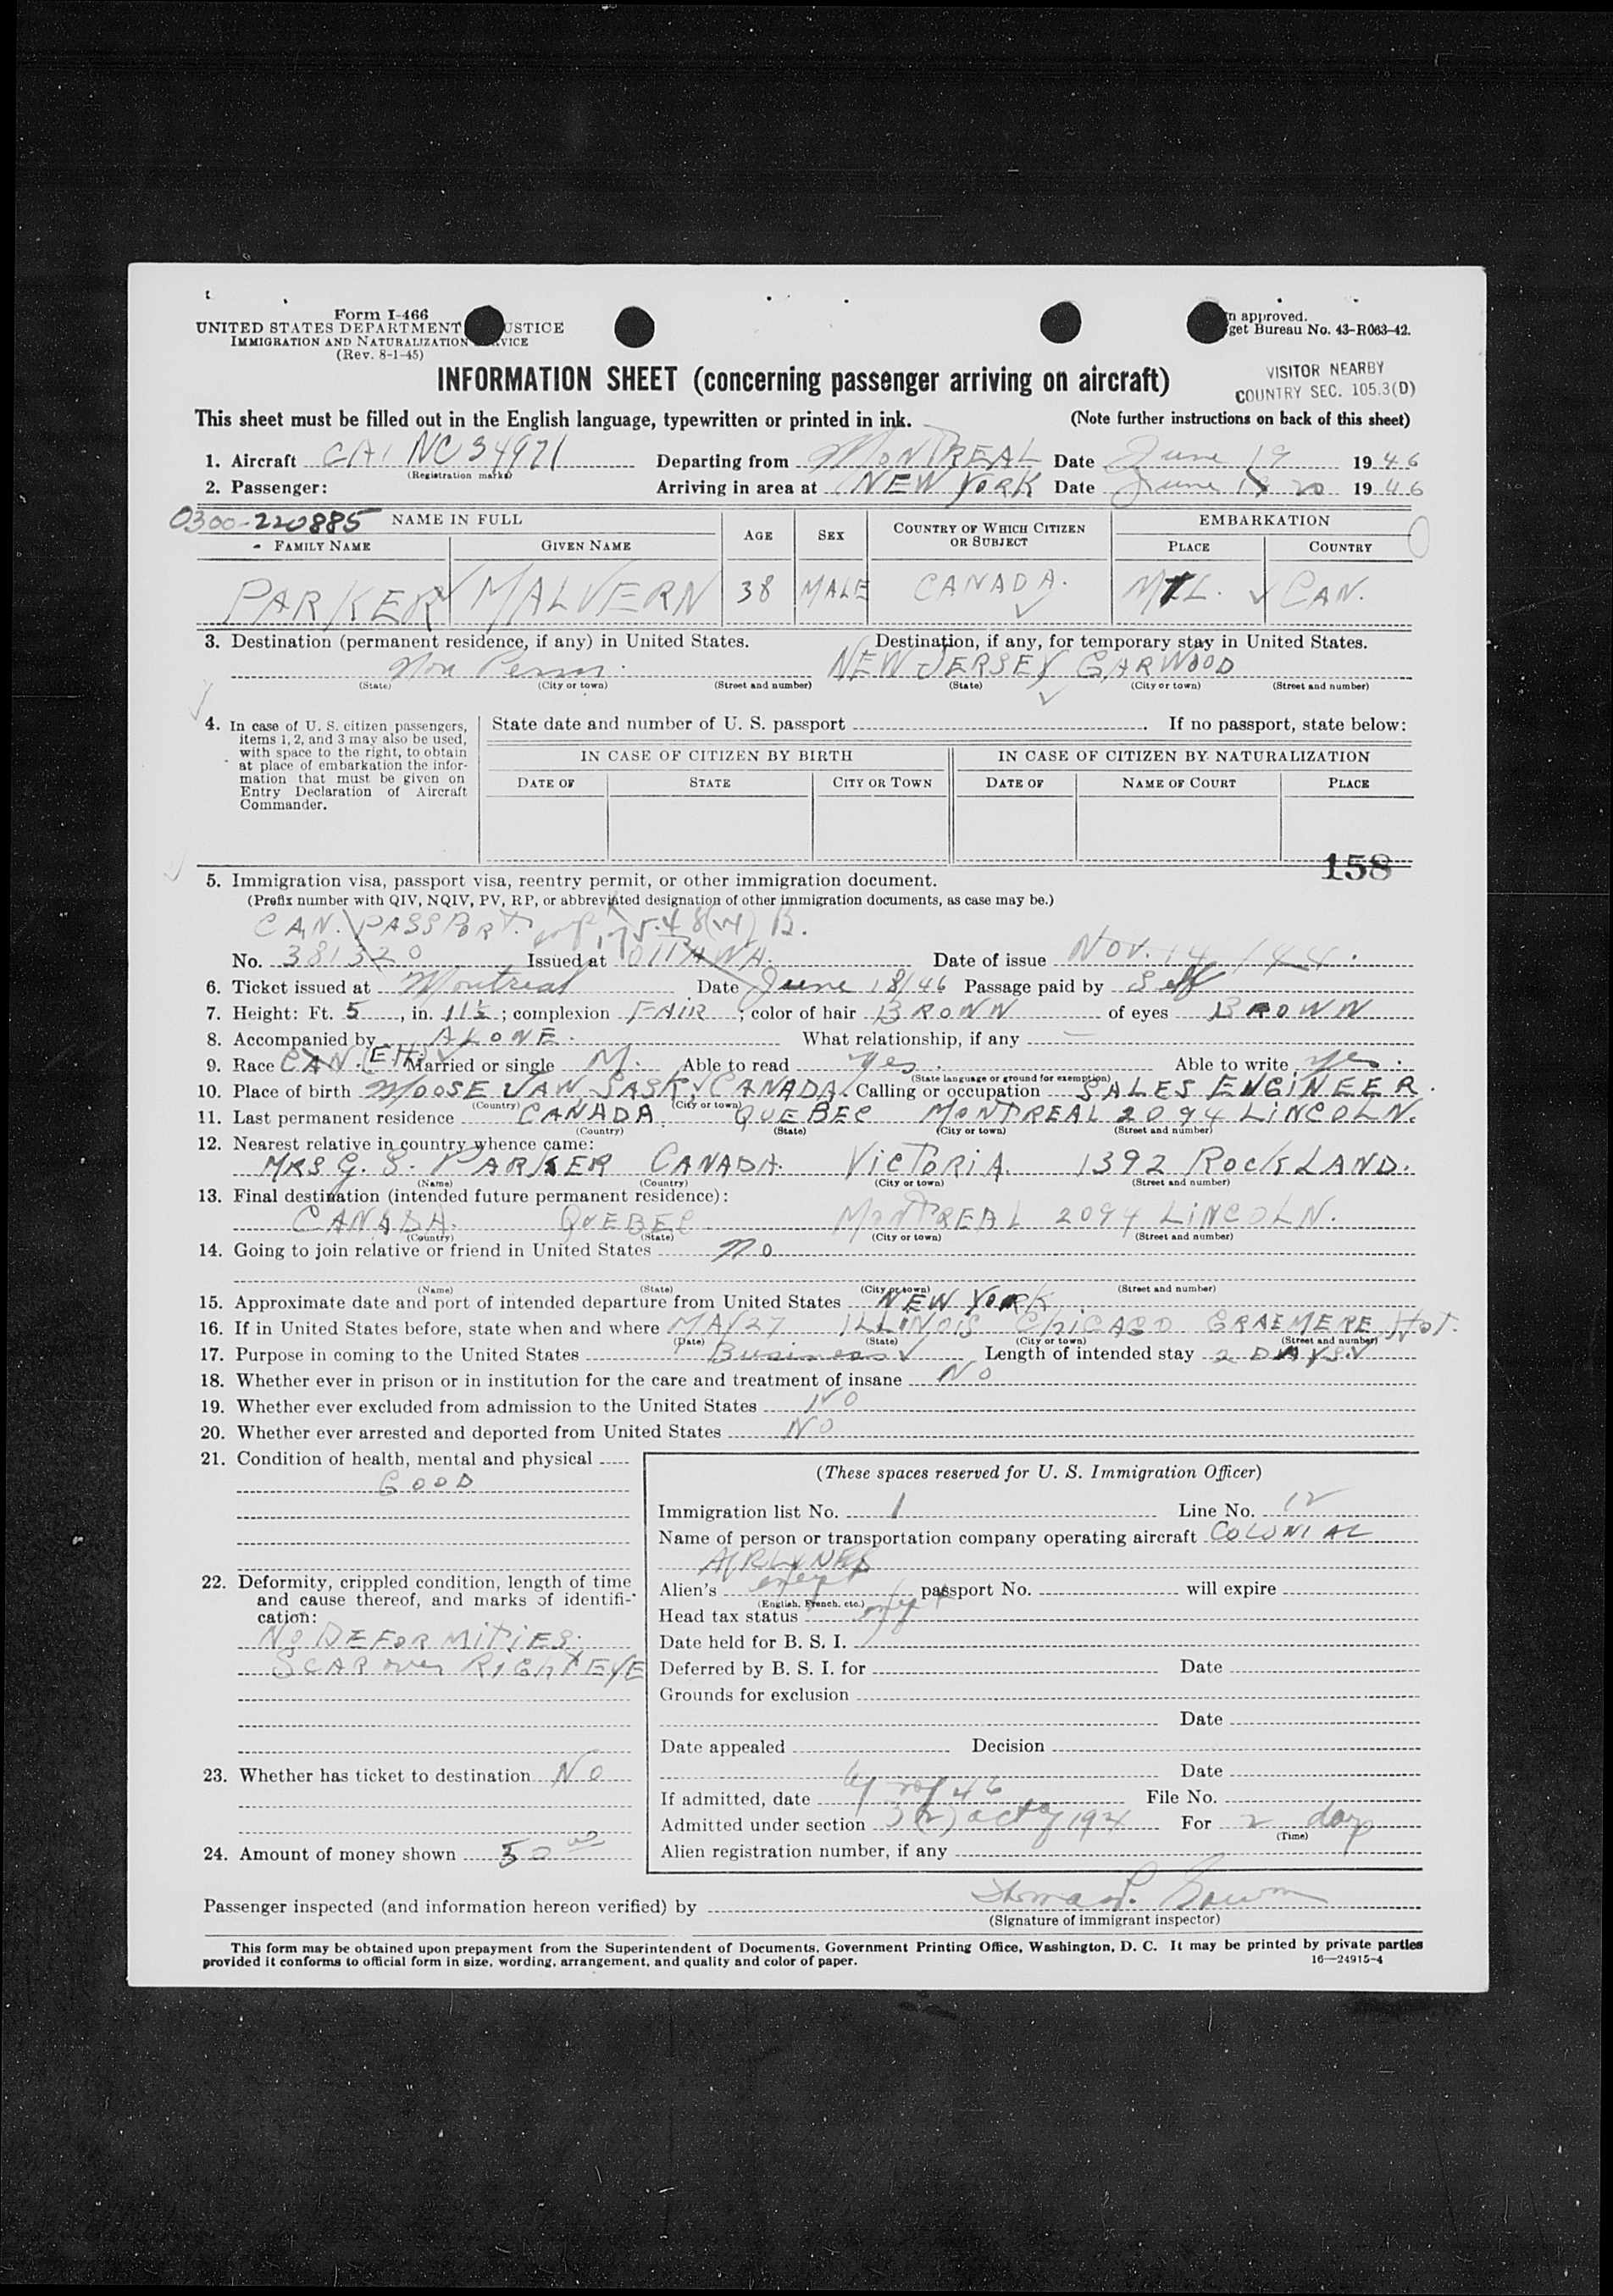 Form I-466
UNITED STATES DEPARTMENT USTICE
IMMIGRATION AND NATURALIZATION VICE
(Rev. 8-1-45)
approved.
get Bureau No. 43-R063-42.
INFORMATION SHEET (concerning passenger arriving on aircraft)
VISITOR NEARBY
COUNTRY SEC. 105.3(D)
This sheet must be filled out in the English language, typewritten or printed in ink. (Note further instructions on back of this sheet)
1. Aircraft CAI NC 34971 Departing from MONTREAL Date June 19 1946
(Registration marks)
2. Passenger: Arriving in area at NEW YORK Date June 20 1946
0300-220885 NAME IN FULL AGE SEX COUNTRY OF WHICH CITIZEN OR SUBJECT EMBARKATION
FAMILY NAME GIVEN NAME PLACE COUNTRY
PARKER MALVERN 38 MALE CANADA. MTL. CAN.
3. Destination (permanent residence, if any) in United States. Destination, if any, for temporary stay in United States.
Non Perm. NEW JERSEY GARWOOD
(State) (City or town) (Street and number) (State) (City or town) (Street and number)
4. In case of U. S. citizen passengers, items 1, 2, and 3 may also be used, with space to the right, to obtain at place of embarkation the information that must be given on Entry Declaration of Aircraft Commander.
State date and number of U. S. passport . If no passport, state below:
IN CASE OF CITIZEN BY BIRTH IN CASE OF CITIZEN BY NATURALIZATION
DATE OF STATE CITY OR TOWN DATE OF NAME OF COURT PLACE
158
5. Immigration visa, passport visa, reentry permit, or other immigration document.
(Prefix number with QIV, NQIV, PV, RP, or abbreviated designation of other immigration documents, as case may be.)
CAN. PASSPORT. 175.48 B.
No. 381320 Issued at OTTAWA. Date of issue NOV. 14 / 44.
6. Ticket issued at Montreal Date June 18/46 Passage paid by Self
7. Height: Ft. 5, in. 11½; complexion FAIR; color of hair BROWN of eyes BROWN
8. Accompanied by ALONE. What relationship, if any —
9. Race CAN. (EH) Married or single M. Able to read Yes. Able to write Yes.
(State language or ground for exemption)
10. Place of birth MOOSE JAW, SASK, CANADA. Calling or occupation SALES ENGINEER.
(Country) (City or town)
11. Last permanent residence CANADA. QUEBEC MONTREAL 2094 LINCOLN.
(Country) (State) (City or town) (Street and number)
12. Nearest relative in country whence came:
MRS G. S. PARKER CANADA. VICTORIA. 1392 ROCKLAND.
(Name) (Country) (City or town) (Street and number)
13. Final destination (intended future permanent residence):
CANADA. QUEBEC MONTREAL 2094 LINCOLN.
(Country) (State) (City or town) (Street and number)
14. Going to join relative or friend in United States No
(Name) (State) (City or town) (Street and number)
15. Approximate date and port of intended departure from United States NEW YORK
16. If in United States before, state when and where MAY 27 ILLINOIS CHICAGO GRAEMERE Hot.
(Date) (State) (City or town) (Street and number)
17. Purpose in coming to the United States Business Length of intended stay 2 DAYS.
18. Whether ever in prison or in institution for the care and treatment of insane NO
19. Whether ever excluded from admission to the United States NO
20. Whether ever arrested and deported from United States NO
21. Condition of health, mental and physical
GOOD
22. Deformity, crippled condition, length of time and cause thereof, and marks of identification:
NO DEFORMITIES.
SCAR over RIGHT EYE
23. Whether has ticket to destination NO
24. Amount of money shown 50 00
(These spaces reserved for U. S. Immigration Officer)
Immigration list No. 1 Line No. 12
Name of person or transportation company operating aircraft COLONIAL
AIRLINES
Alien's passport No. will expire
(English, French, etc.)
Head tax status
Date held for B. S. I.
Deferred by B. S. I. for Date
Grounds for exclusion
Date
Date appealed Decision
Date
If admitted, date 6/20/46 File No.
Admitted under section 3(2) act of 1924 For 2 days
(Time)
Alien registration number, if any
Passenger inspected (and information hereon verified) by
(Signature of immigrant inspector)
This form may be obtained upon prepayment from the Superintendent of Documents, Government Printing Office, Washington, D. C. It may be printed by private parties
provided it conforms to official form in size, wording, arrangement, and quality and color of paper. 16—24915-4